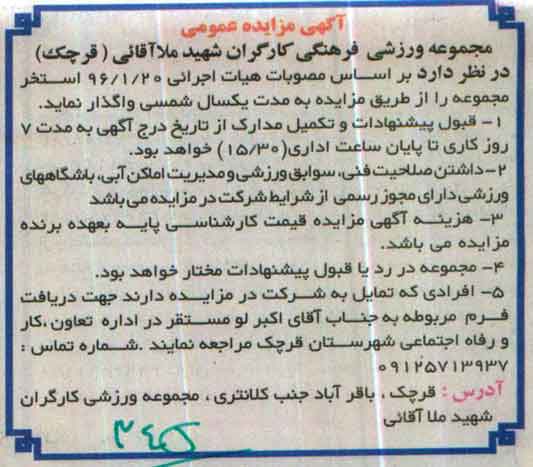 آگهی مزایده عمومی
مجموعه ورزشی فرهنگی کارگران شهید ملاآقائی (قرچک)
در نظر دارد بر اساس مصوبات هیات اجرائی ۹۶/۱/۲۰ استخر
مجموعه را از طریق مزایده به مدت یکسال شمسی واگذار نماید.
۱- قبول پیشنهادات و تکمیل مدارک از تاریخ درج آگهی به مدت ۷
روز کاری تا پایان ساعت اداری(۱۵/۳۰) خواهد بود.
۲-داشتن صلاحیت فنی، سوابق ورزشی و مدیریت اماکن آبی، باشگاههای
ورزشی دارای مجوز رسمی از شرایط شرکت در مزایده می باشد
۳- هزینه آگهی مزایده قیمت کارشناسی پایه بعهده برنده
مزایده می باشد.
۴- مجموعه در رد یا قبول پیشنهادات مختار خواهد بود.
۵- افرادی که تمایل به شرکت در مزایده دارند جهت دریافت
فرم مربوطه به جناب آقای اکبر لو مستقر در اداره تعاون،کار
و رفاه اجتماعی شهرستان قرچک مراجعه نمایند .شماره تماس :
۰۹۱۲۵۷۱۳۹۳۷
آدرس : قرچک ، باقر آباد جنب کلانتری ، مجموعه ورزشی کارگران
شهید ملا آقائی